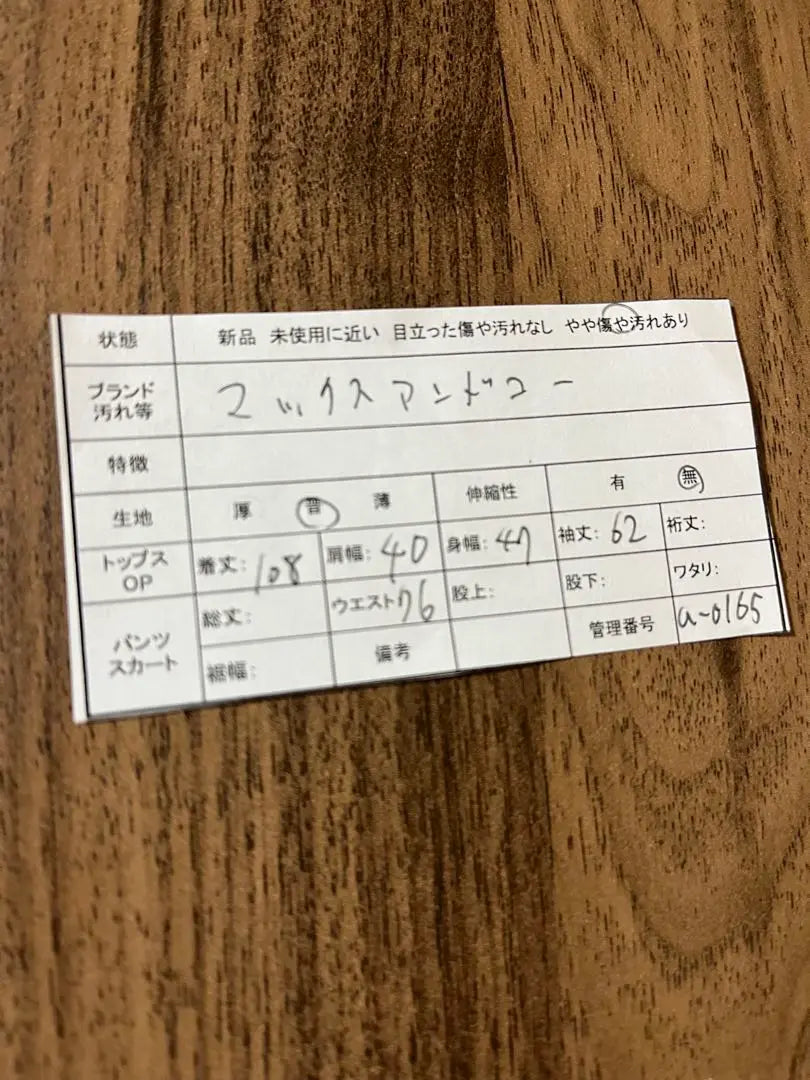 状態 新品 未使用に近い 目立った傷や汚れなし やや傷や汚れあり
ブランド
汚れ等 マックスアンドコー
特徴
生地 厚 普 薄 伸縮性 有 無
トップス
OP 着丈: 108 肩幅: 40 身幅: 47 袖丈: 62 裄丈:
パンツ
スカート 総丈: ウエスト 76 股上: 股下: ワタリ:
裾幅: 備考 管理番号 a-0165